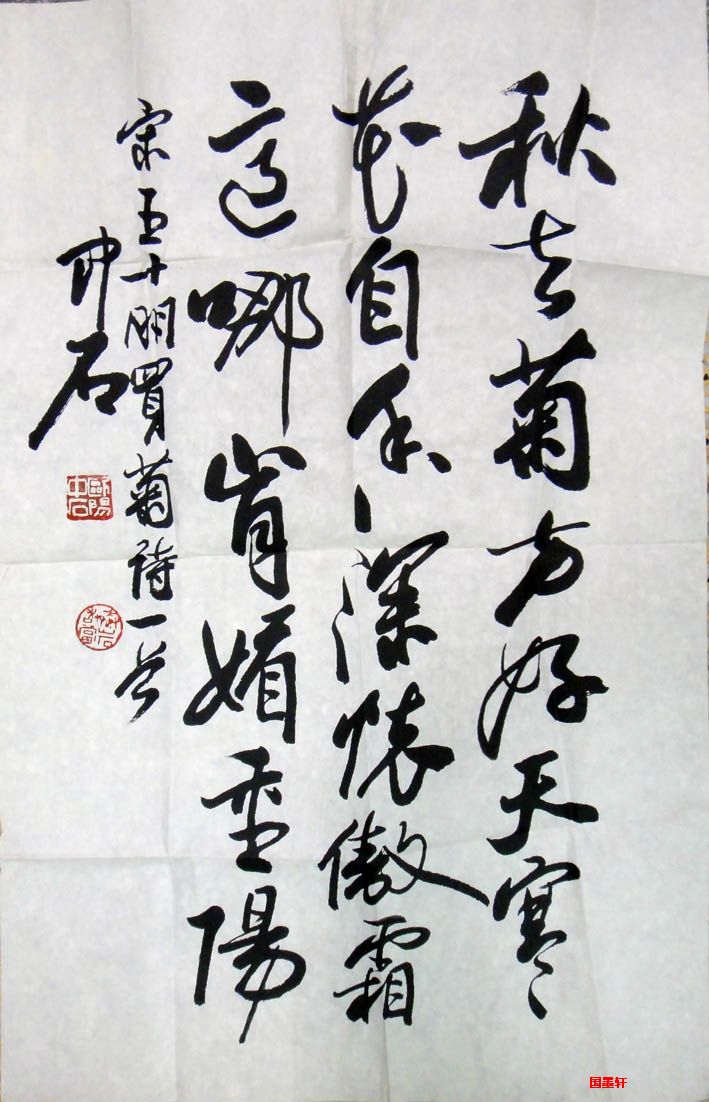 秋去菊方好天寒
花自香深懷傲霜
意哪肯媚重陽
宋王十朋買菊詩一首
中石
歐陽中石
国墨轩